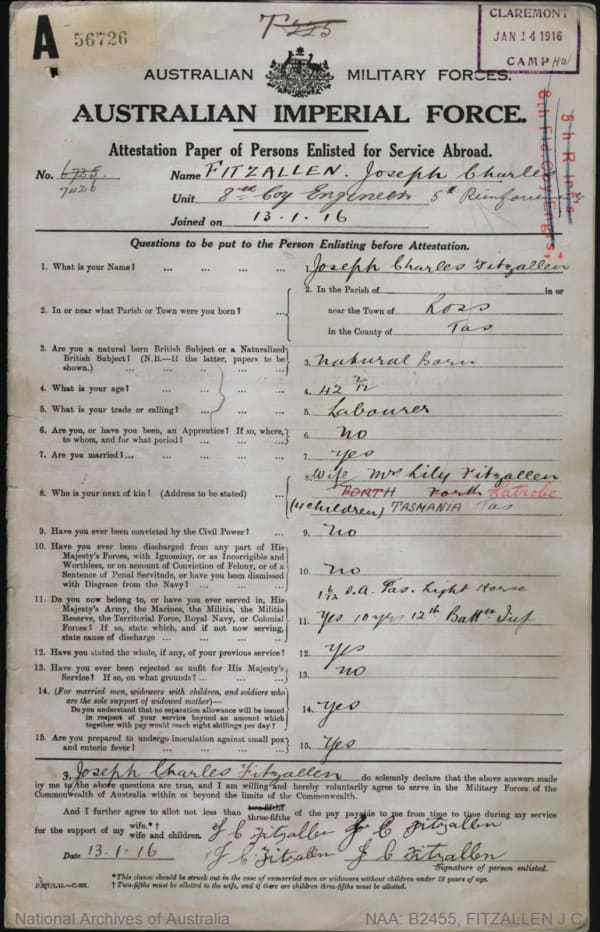 T 225
CLAREMONT
JAN 14 1916
CAMP
A 56726
AUSTRALIAN MILITARY FORCES.
AUSTRALIAN IMPERIAL FORCE.
Attestation Paper of Persons Enlisted for Service Abroad.
No. 6725 Name FITZALLEN. Joseph Charles
7426 Unit 8th Coy Engineers 5th Reinforcements
Joined on 13.1.16
Questions to be put to the Person Enlisting before Attestation.
1. What is your Name? ... ... ... ... 1. Joseph Charles Fitzallen
2. In or near what Parish or Town were you born? ... 2. In the Parish of in or
near the Town of Ross
in the County of Tas
3. Are you a natural born British Subject or a Naturalized
British Subject? (N.B.—If the latter, papers to be
shown.) ... ... ... ... 3. Natural Born
4. What is your age? ... ... ... 4. 42 2/12
5. What is your trade or calling? ... ... 5. Labourer
6. Are you, or have you been, an Apprentice? If so, where,
to whom, and for what period? ... ... ... 6. No
7. Are you married? ... ... ... ... 7. Yes
8. Who is your next of kin? (Address to be stated) ... 8. Wife Mrs Lily Fitzallen
FORTH Forth Latrobe
(4 children) TASMANIA Tas
9. Have you ever been convicted by the Civil Power? ... 9. No
10. Have you ever been discharged from any part of His
Majesty's Forces, with Ignominy, or as Incorrigible and
Worthless, or on account of Conviction of Felony, or of a
Sentence of Penal Servitude, or have you been dismissed
with Disgrace from the Navy? ... ... 10. No
S.A. Tas. Light Horse
11. Do you now belong to, or have you ever served in, His
Majesty's Army, the Marines, the Militia, the Militia
Reserve, the Territorial Force, Royal Navy, or Colonial
Forces? If so, state which, and if not now serving,
state cause of discharge ... ... ... 11. Yes 10 yrs 12th Battn Inf
12. Have you stated the whole, if any, of your previous service? 12. Yes
13. Have you ever been rejected as unfit for His Majesty's
Service? If so, on what grounds? ... ... ... 13. No
14. (For married men, widowers with children, and soldiers who
are the sole support of widowed mother)—
Do you understand that no separation allowance will be issued
in respect of your service beyond an amount which
together with pay would reach eight shillings per day? 14. Yes
15. Are you prepared to undergo inoculation against small pox
and enteric fever? ... ... ... ... 15. Yes
I, Joseph Charles Fitzallen do solemnly declare that the above answers made
by me to the above questions are true, and I am willing and hereby voluntarily agree to serve in the Military Forces of the
Commonwealth of Australia within or beyond the limits of the Commonwealth.
And I further agree to allot not less than two-fifths three-fifths of the pay payable to me from time to time during my service
for the support of my wife.*†
wife and children. J C Fitzallen J C Fitzallen
Date 13.1.16 J C Fitzallen J C Fitzallen
Signature of person enlisted.
*This clause should be struck out in the case of unmarried men or widowers without children under 18 years of age.
†Two-fifths must be allotted to the wife, and if there are children three-fifths must be allotted.
National Archives of Australia NAA: B2455, FITZALLEN J C